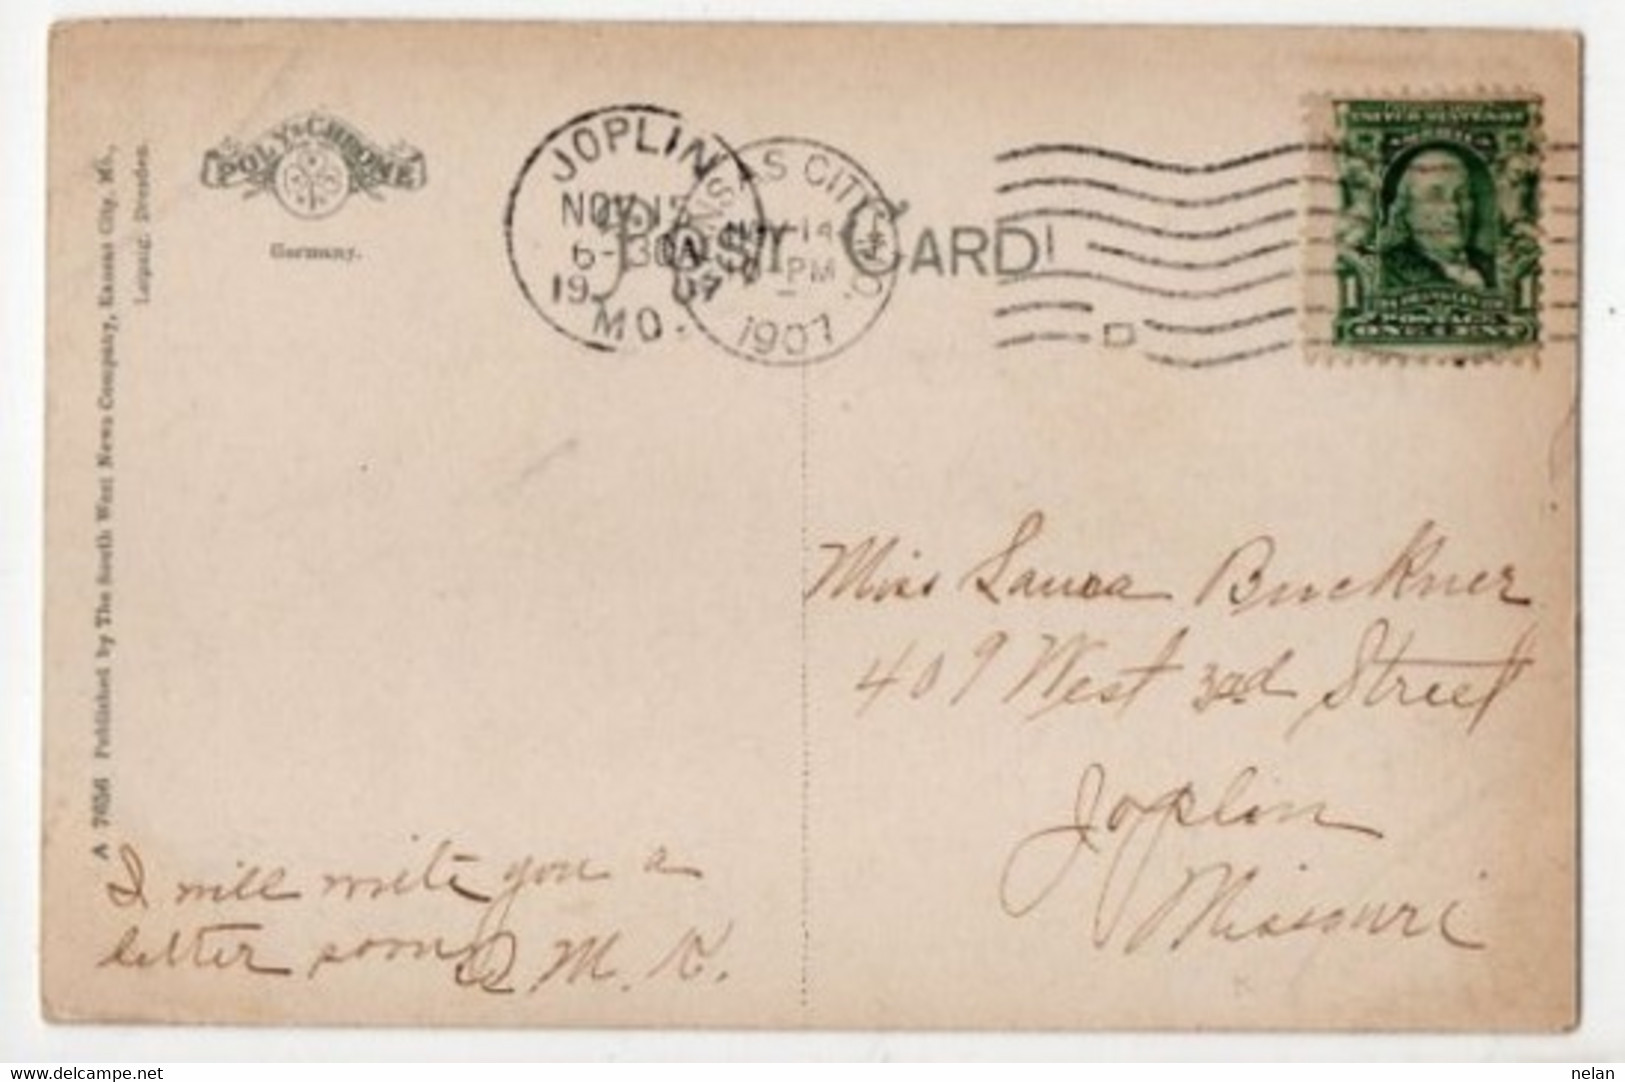 POLY-CHROME
Germany.
A 7656 Published by The South West News Company, Kansas City, Mo.,
Leipzig, Dresden.
JOPLIN
NOV 15
6-30A
19 07
MO.
KANSAS CITY, MO.
NOV 14
PM
1907
POST CARD
D
1 POSTAGE 1
ONE CENT
Miss Laura Buckner
409 West 3rd Street
Joplin
Missouri
I will write you a
letter soon M. K.
www.delcampe.net
nelan